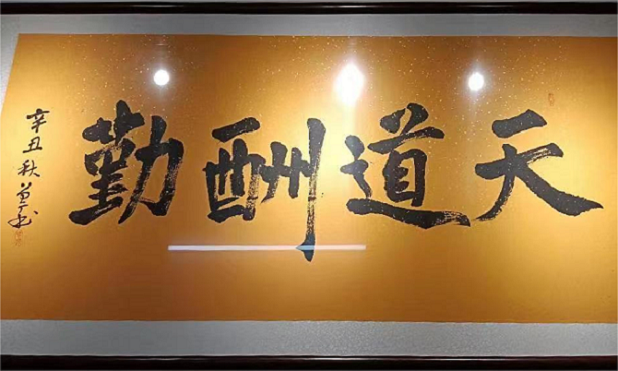 天道酬勤
辛丑秋